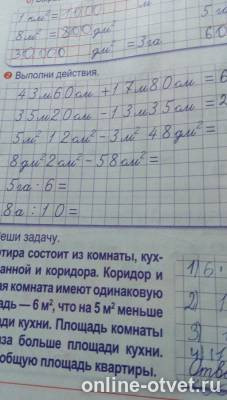 1 км² = 1000 м
8 м² = 800 дм²
5 га
30.000 дм² = 3га
60
2 Выполни действия.
43м60см + 17м80см = 6
35м20см - 13м35см = 2
5м² 12см² - 3м² 48дм² =
8дм²2см² - 58см² =
5га · 6 =
8а : 10 =
еши задачу.
тира состоит из комнаты, кух-
анной и коридора. Коридор и
ая комната имеют одинаковую
адь — 6 м², что на 5 м² меньше
ади кухни. Площадь комнаты
за больше площади кухни.
общую площадь квартиры.
1) 6
2)
3)
Отв
online-otvet.ru